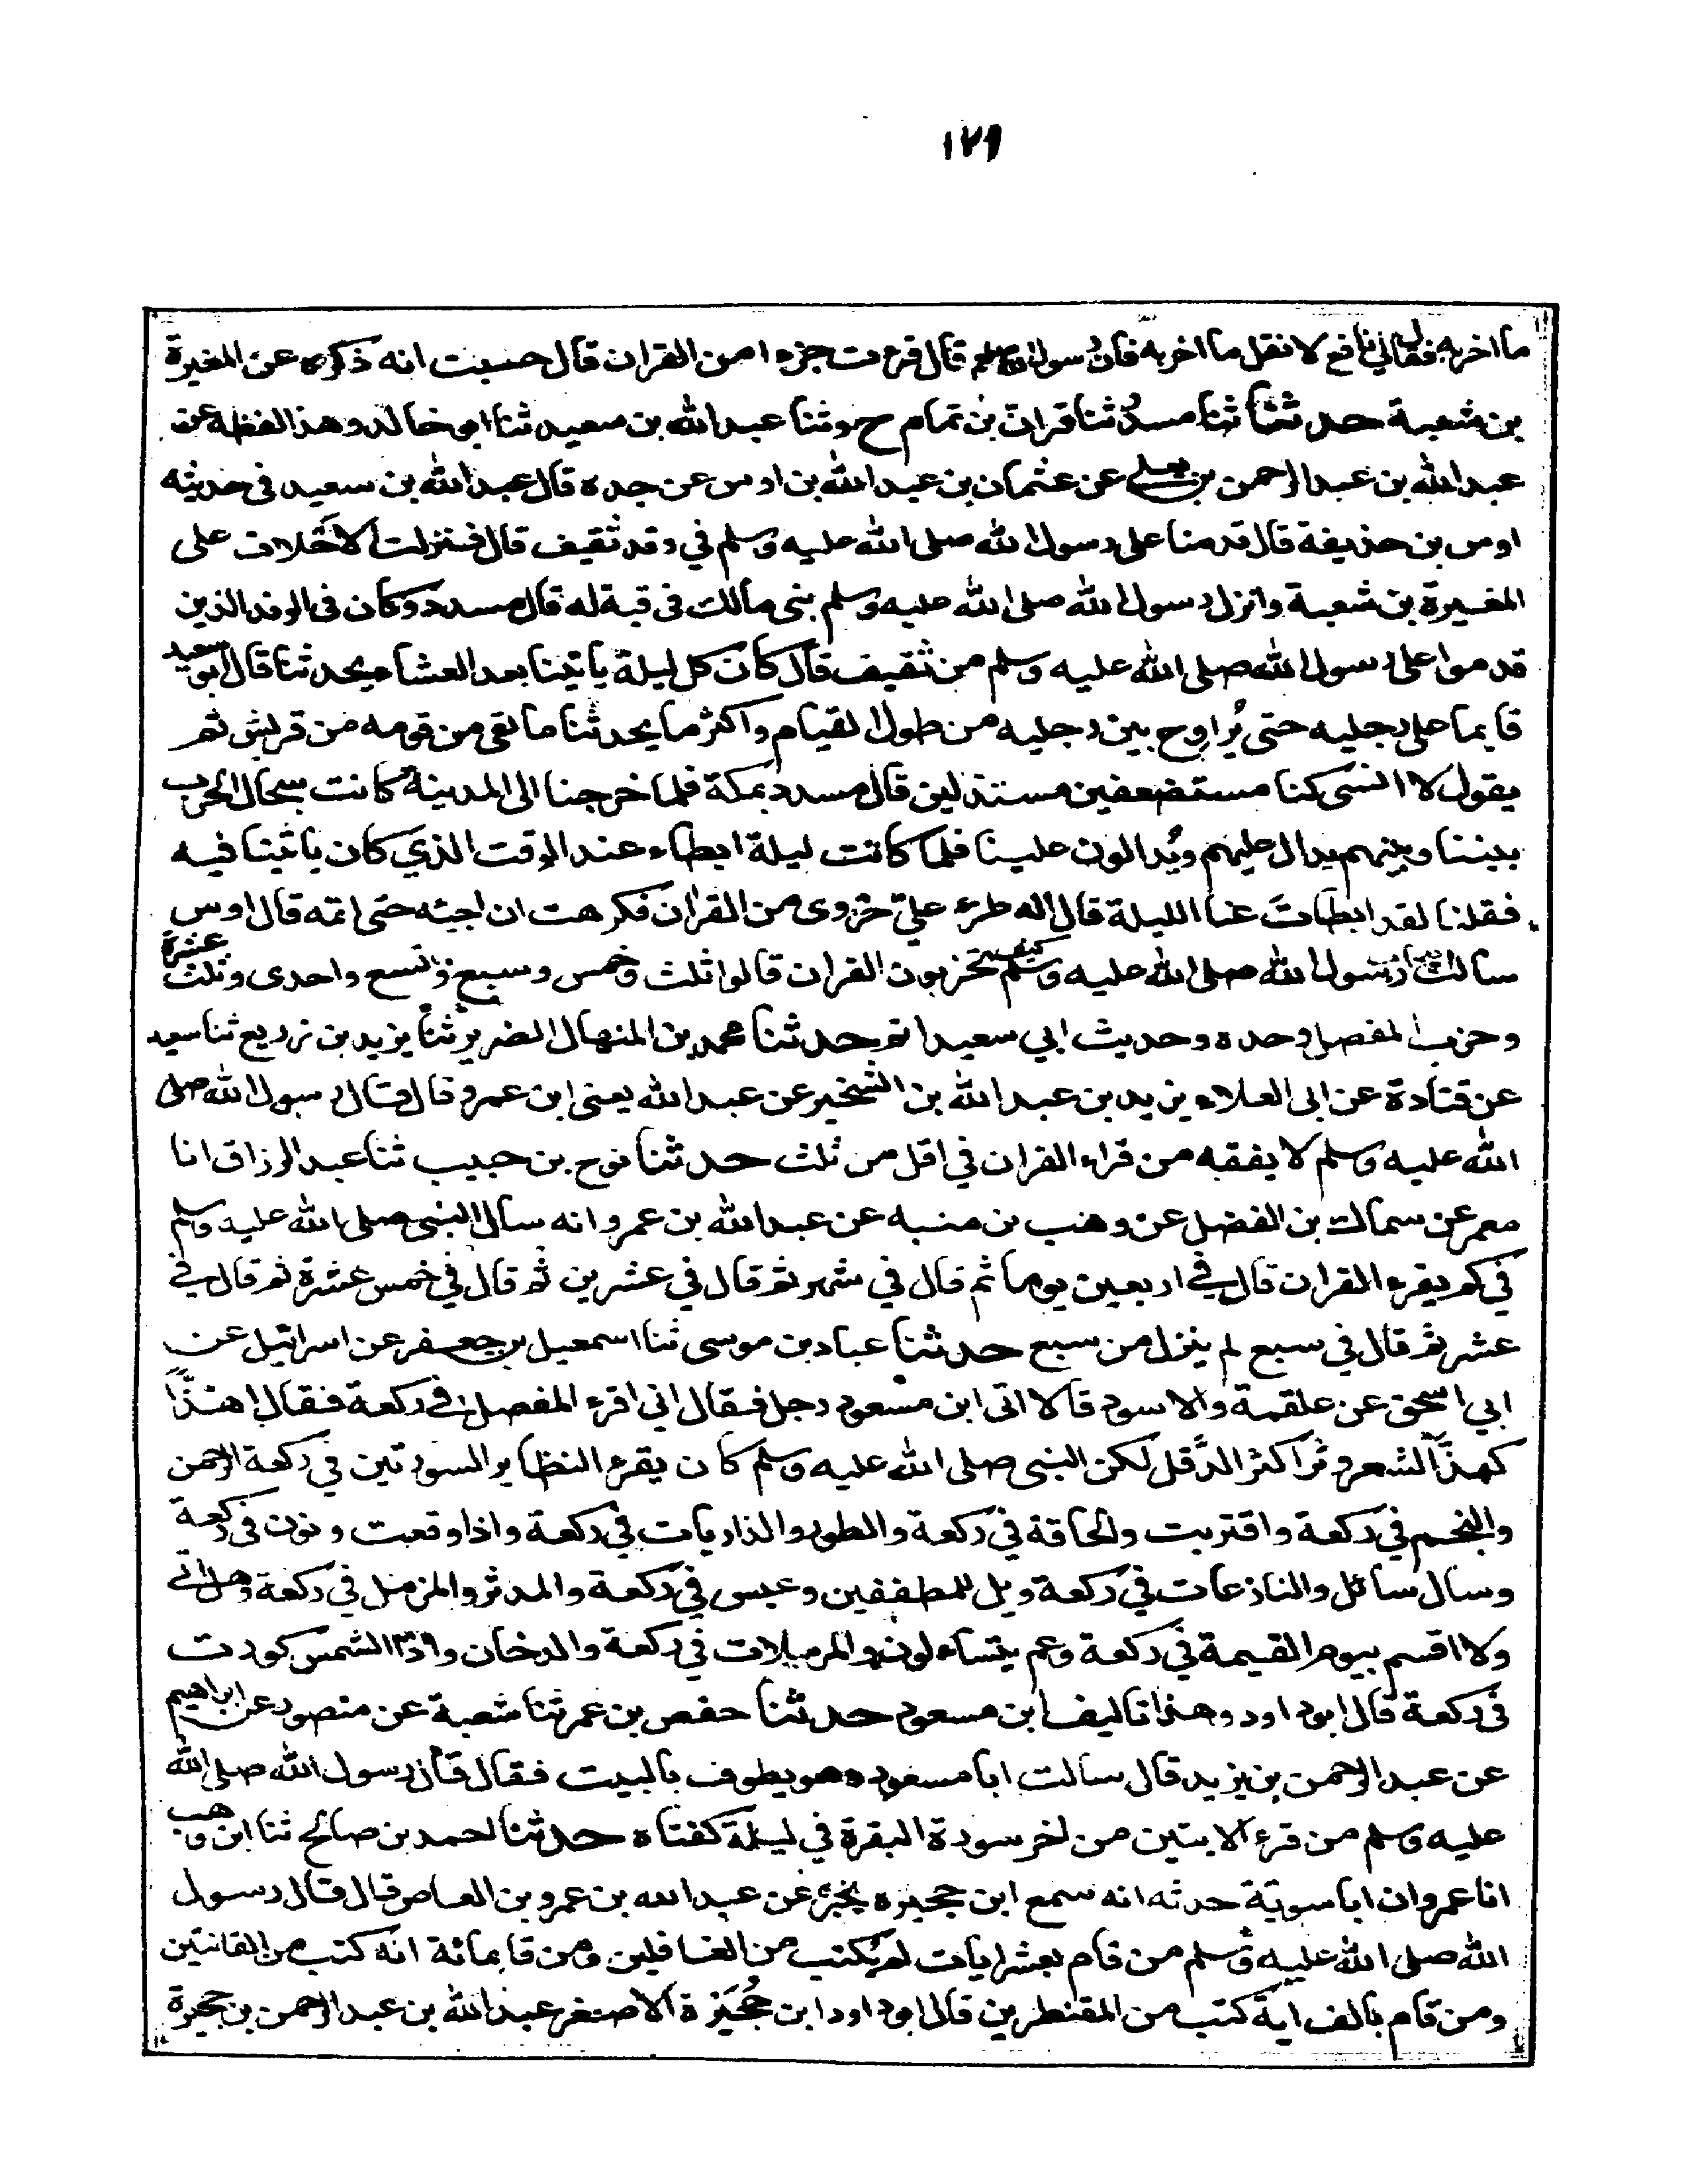 ١٧٩
ما احزبه فقال لي نافع لا تقل ما احزبه فان رسول الله صلعم قال قرءت جزءا من القران قال حسبت انه ذكره عن المغيرة
بن شعبة حدثنا ثنا مسدد ثنا قران بن تمام ح وثنا عبد الله بن سعيد ثنا ابو خالد وهذا لفظه عن
عبد الله بن عبد الرحمن بن يعلى عن عثمان بن عبد الله بن اوس عن جده قال عبد الله بن سعيد في حديثه
اوس بن حذيفة قال قدمنا على رسول الله صلى الله عليه وسلم في وفد ثقيف قال فنزلت الاحلاف على
المغيرة بن شعبة وانزل رسول الله صلى الله عليه وسلم بني مالك في قبة له قال مسدد وكان في الوفد الذين
قدموا على رسول الله صلى الله عليه وسلم من ثقيف قال كان كل ليلة ياتينا بعد العشاء يحدثنا قال ابو سعيد
قايما على رجليه حتى يُراوح بين رجليه من طول القيام واكثر ما يحدثنا ما لقي من قومه من قريش ثم
يقول لا انسى كنا مستضعفين مستذلين قال مسدد بمكة فلما خرجنا الى المدينة كانت سجال الحرب
بيننا وبينهم يدال عليهم ويُدالون علينا فلما كانت ليلة ابطاء عند الوقت الذي كان ياتينا فيه
فقلنا لقد ابطات عنا الليلة قال انه طرء عليّ حزوى من القران فكرهت ان اجيئه حتى اتمه قال اوس
سالت رسول الله صلى الله عليه وسلم كيف تحزبون القران قالوا ثلث وخمس وسبع وتسع واحدى وثلث عشرة
وحزب المفصل وحده وحديث ابي سعيد اتم حدثنا محمد بن المنهال الضرير ثنا يزيد بن زريع ثنا سعيد
عن قتادة عن ابي العلاء يزيد بن عبد الله بن الشخير عن عبد الله يعني ابن عمرو قال قال رسول الله صلى
الله عليه وسلم لا يفقه من قراء القران في اقل من ثلث حدثنا نوح بن حبيب ثنا عبد الرزاق انا
معمر عن سماك بن الفضل عن وهب بن منبه عن عبد الله بن عمرو انه سال النبي صلى الله عليه وسلم
في كم يقرء القران قال في اربعين يوما ثم قال في شهر ثم قال في عشرين ثم قال في خمس عشرة ثم قال في
عشر ثم قال في سبع لم ينزل من سبع حدثنا عباد بن موسى ثنا اسمعيل بن جعفر عن اسرائيل عن
ابي اسحق عن علقمة والاسود قالا اتى ابن مسعود رجل فقال اني اقرء المفصل في ركعة فقال اهذّاً
كهذّ الشعر ونثرا كنثر الدَّقل لكن النبي صلى الله عليه وسلم كان يقرء النظاير السورتين في ركعة الرحمن
والنجم في ركعة واقتربت والحاقة في ركعة والطور والذاريات في ركعة واذا وقعت ونون في ركعة
وسال سائل والنازعات في ركعة وويل للمطففين وعبس في ركعة والمدثر والمزمل في ركعة وهل اتى
ولا اقسم بيوم القيمة في ركعة وعم يتساءلون والمرسلات في ركعة والدخان واذا الشمس كورت
في ركعة قال ابو داود وهذا تاليف ابن مسعود حدثنا حفص بن عمر ثنا شعبة عن منصور عن ابراهيم
عن عبد الرحمن بن يزيد قال سالت ابا مسعود وهو يطوف بالبيت فقال قال رسول الله صلى الله
عليه وسلم من قرء الايتين من اخر سورة البقرة في ليلة كفتاه حدثنا احمد بن صالح ثنا ابن وهب
انا عمرو ان ابا سوية حدثه انه سمع ابن حجيرة يخبر عن عبد الله بن عمرو بن العاص قال قال رسول
الله صلى الله عليه وسلم من قام بعشر ايات لم يُكتب من الغافلين ومن قام بمائة اية كتب من القانتين
ومن قام بالف اية كتب من المقنطرين قال ابو داود ابن حُجَيرة الاصغر عبد الله بن عبد الرحمن بن حجيرة